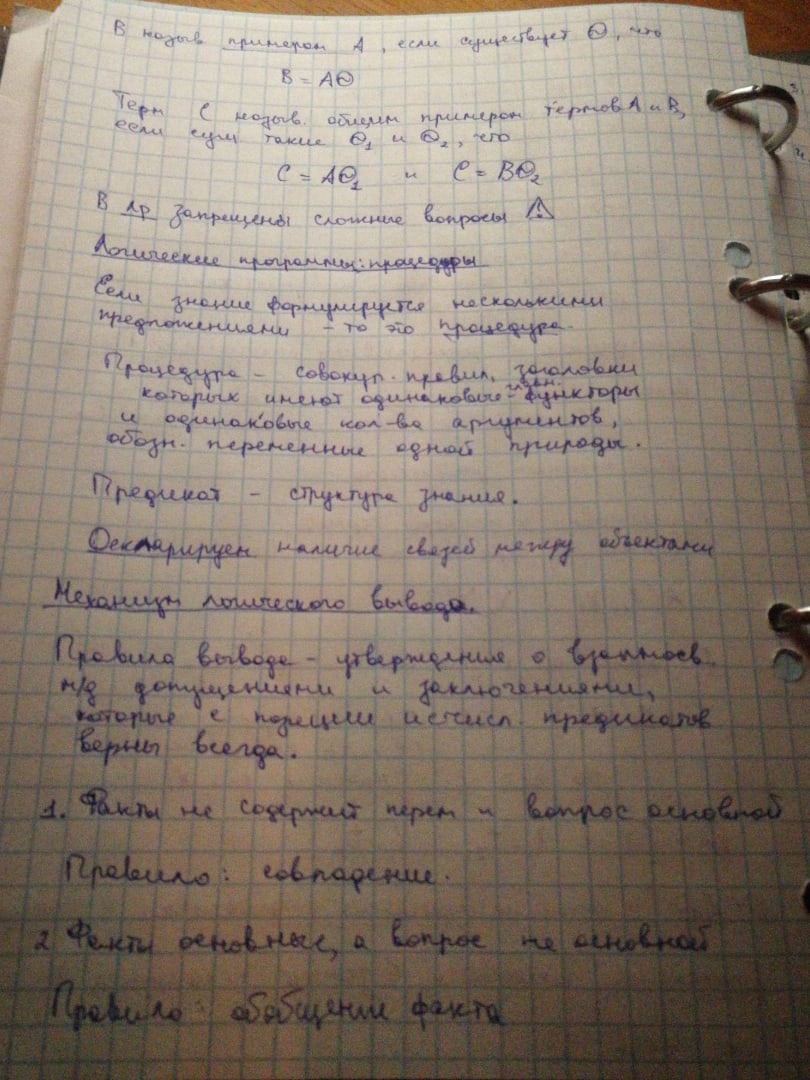 В назыв примером А, если существует Θ, что
B = AΘ
Терм С назыв. общим примером термов А и В,
если сущ. такие Θ₁ и Θ₂, что
C = AΘ₁ и C = BΘ₂
В лр запрещены сложные вопросы ⚠
Логические программы: процедуры
Если знание формулируется несколькими
предложениями - то это процедура.
Процедура - совокуп. правил, заголовки
которых имеют одинаковые функторы
и одинаковые кол-ва аргументов,
обозн. переменные одной природы.
Предикат - структура знания.
Декларируем наличие связей между объектами
Механизм логического вывода.
Правила вывода - утверждения о взаимосв.
м/д допущениями и заключениями,
которые с позиции исчисл. предикатов
верны всегда.
1. Факты не содержит перем и вопрос основной
Правило: совпадение.
2 Факты основные, а вопрос не основной
Правило: обобщение факта